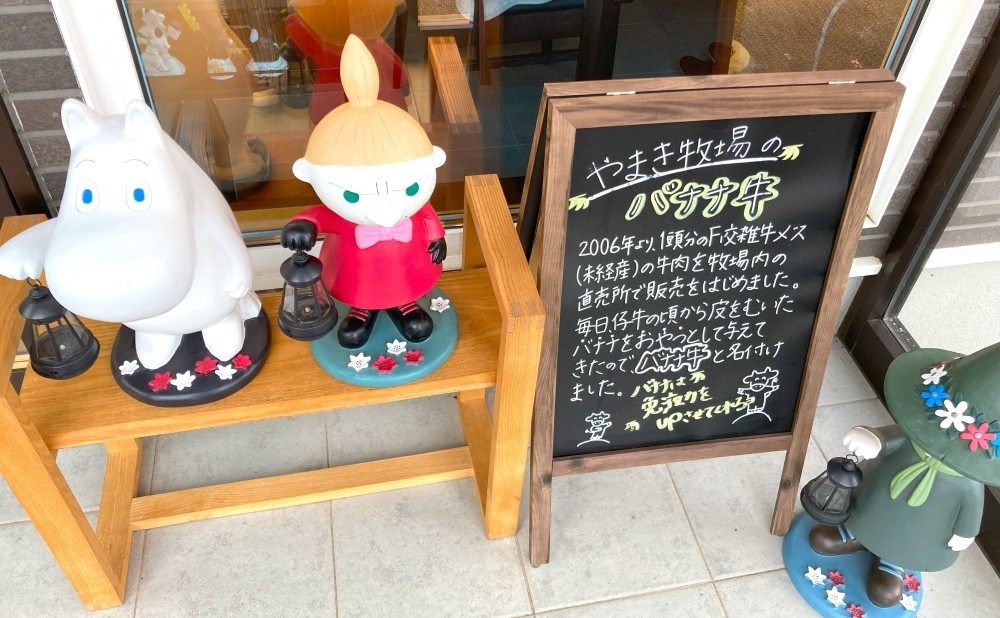 やまき牧場の
バナナ牛
2006年より、1頭分のF1交雑牛メス
(未経産)の牛肉を牧場内の
直売所で販売をはじめました。
毎日仔牛の頃から皮をむいた
バナナをおやつとして与えて
きたので、バナナ牛と名付け
ました。
バナナは
免疫力を
upさせてくれる!